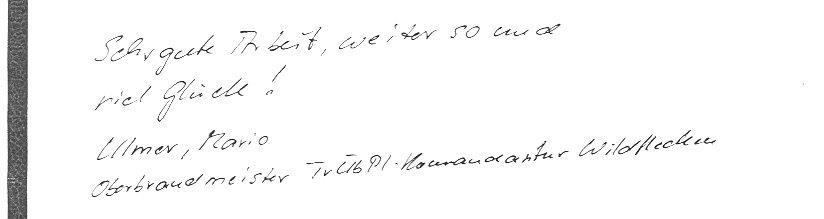 Sehr gute Arbeit, weiter so und
viel Glück!
Ulmer, Mario
Oberbrandmeister TrÜbPl-Kommandantur Wildflecken